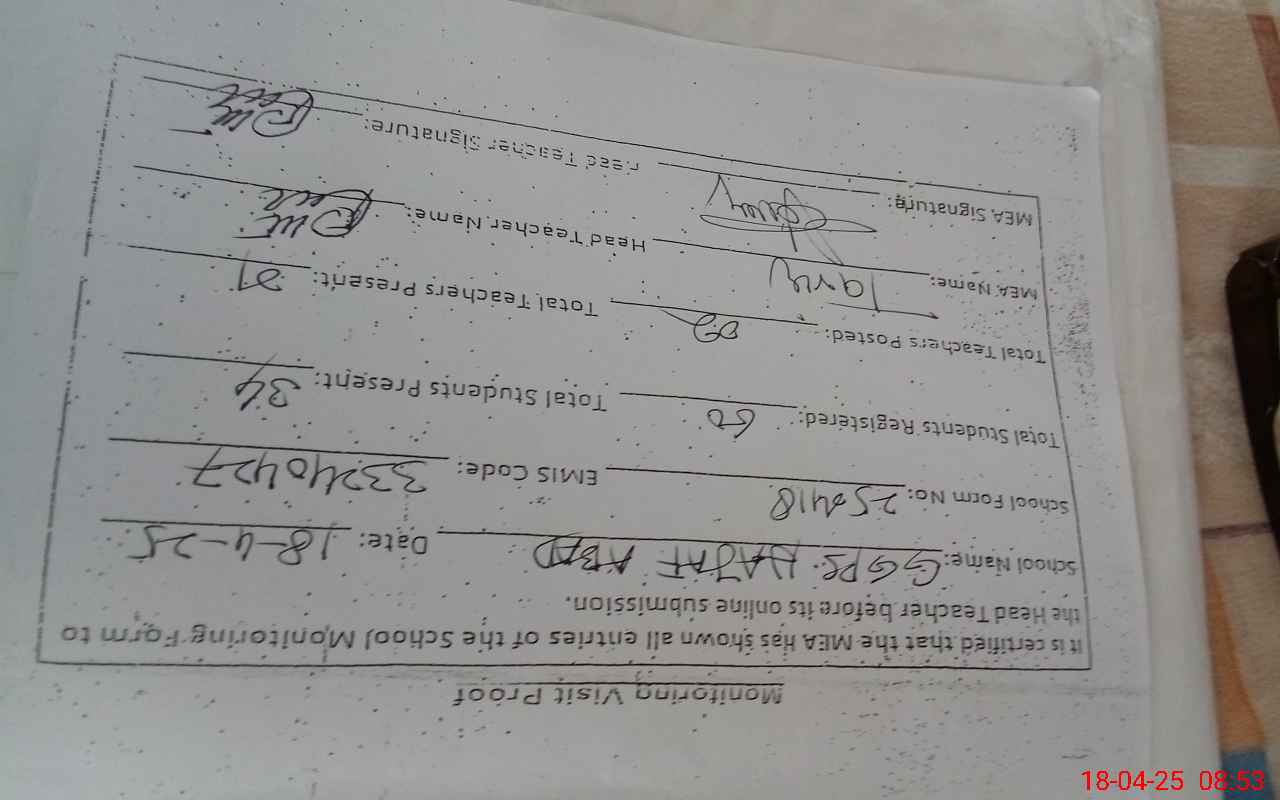 Monitoring Visit Proof
It is certified that the MEA Has shown all entries of the School Monitoring Form to
the Head Teacher before its online submission.
School Name: GGPS NAJAF ABAD Date: 18-4-25
School Form No: 250418 EMIS Code: 33240427
Total Students Registered: 60 Total Students Present: 34
Total Teachers Posted: 02 Total Teachers Present: 01
MEA Name: Head Teacher Name:
MEA Signature: Head Teacher Signature:
18-04-25 08:53